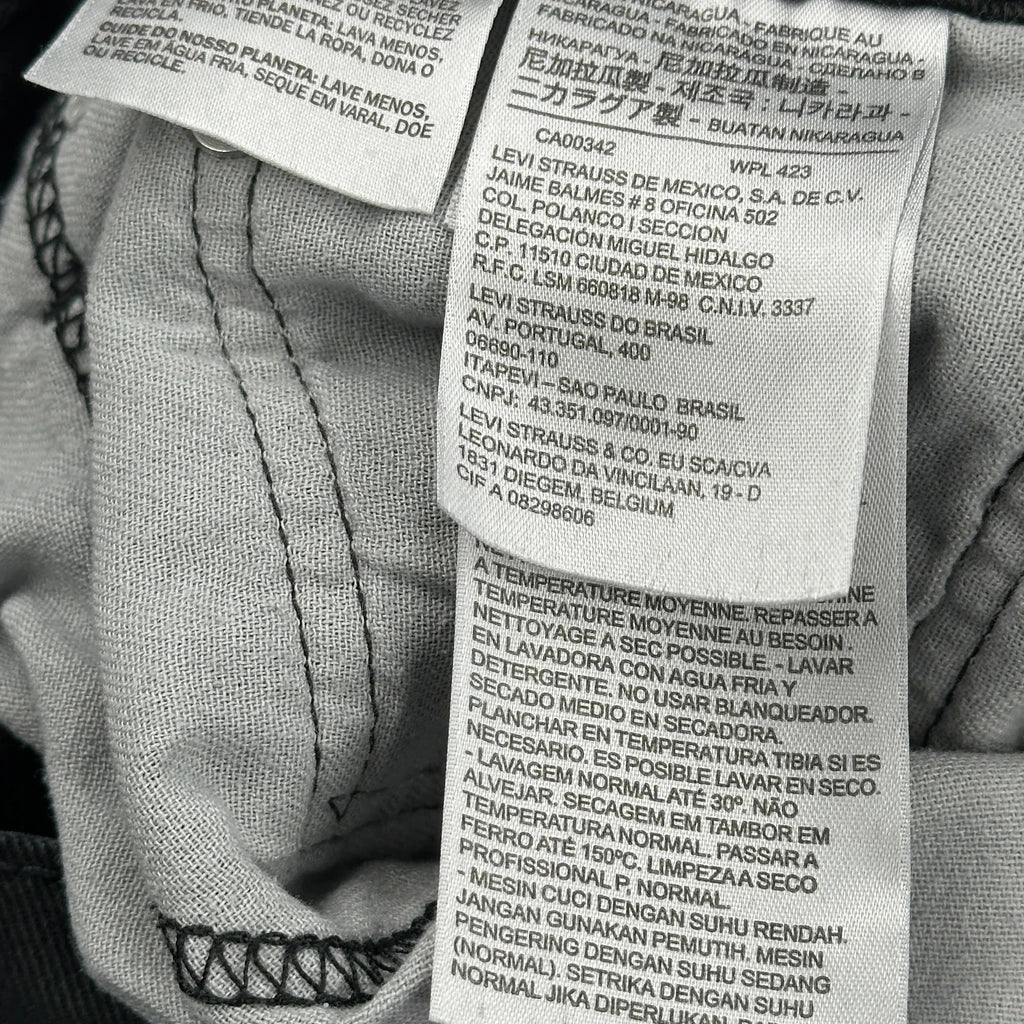 SÉCHER
OU RECYCLEZ
EN FRIO, TIENDE LA ROPA, DONA O
RECICLA.
CUIDE DO NOSSO PLANETA: LAVE MENOS,
LAVE EM ÁGUA FRIA, SEQUE EM VARAL, DOE
OU RECICLE.
NICARAGUA - FABRIQUE AU
NICARAGUA - FABRICADO EN NICARAGUA -
FABRICADO NA NICARÁGUA - СДЕЛАНО В
НИКАРАГУА - 尼加拉瓜制造 -
尼加拉瓜製 - 제조국 : 니카라과 -
ニカラグア製 - BUATAN NIKARAGUA
CA00342 WPL 423
LEVI STRAUSS DE MEXICO, S.A. DE C.V.
JAIME BALMES # 8 OFICINA 502
COL. POLANCO I SECCION
DELEGACIÓN MIGUEL HIDALGO
C.P. 11510 CIUDAD DE MEXICO
R.F.C. LSM 660818 M-98 C.N.I.V. 3337
LEVI STRAUSS DO BRASIL
AV. PORTUGAL, 400
06690-110
ITAPEVI – SAO PAULO BRASIL
CNPJ: 43.351.097/0001-90
LEVI STRAUSS & CO. EU SCA/CVA
LEONARDO DA VINCILAAN, 19 - D
1831 DIEGEM, BELGIUM
CIF A 08298606
A TEMPERATURE MOYENNE. REPASSER A
TEMPERATURE MOYENNE AU BESOIN .
NETTOYAGE A SEC POSSIBLE. - LAVAR
EN LAVADORA CON AGUA FRIA Y
DETERGENTE. NO USAR BLANQUEADOR.
SECADO MEDIO EN SECADORA.
PLANCHAR EN TEMPERATURA TIBIA SI ES
NECESARIO. ES POSIBLE LAVAR EN SECO.
- LAVAGEM NORMAL ATÉ 30º. NÃO
ALVEJAR. SECAGEM EM TAMBOR EM
TEMPERATURA NORMAL. PASSAR A
FERRO ATÉ 150ºC. LIMPEZA A SECO
PROFISSIONAL P, NORMAL.
- MESIN CUCI DENGAN SUHU RENDAH.
JANGAN GUNAKAN PEMUTIH. MESIN
PENGERING DENGAN SUHU SEDANG
(NORMAL). SETRIKA DENGAN SUHU
NORMAL JIKA DIPERLUKAN.